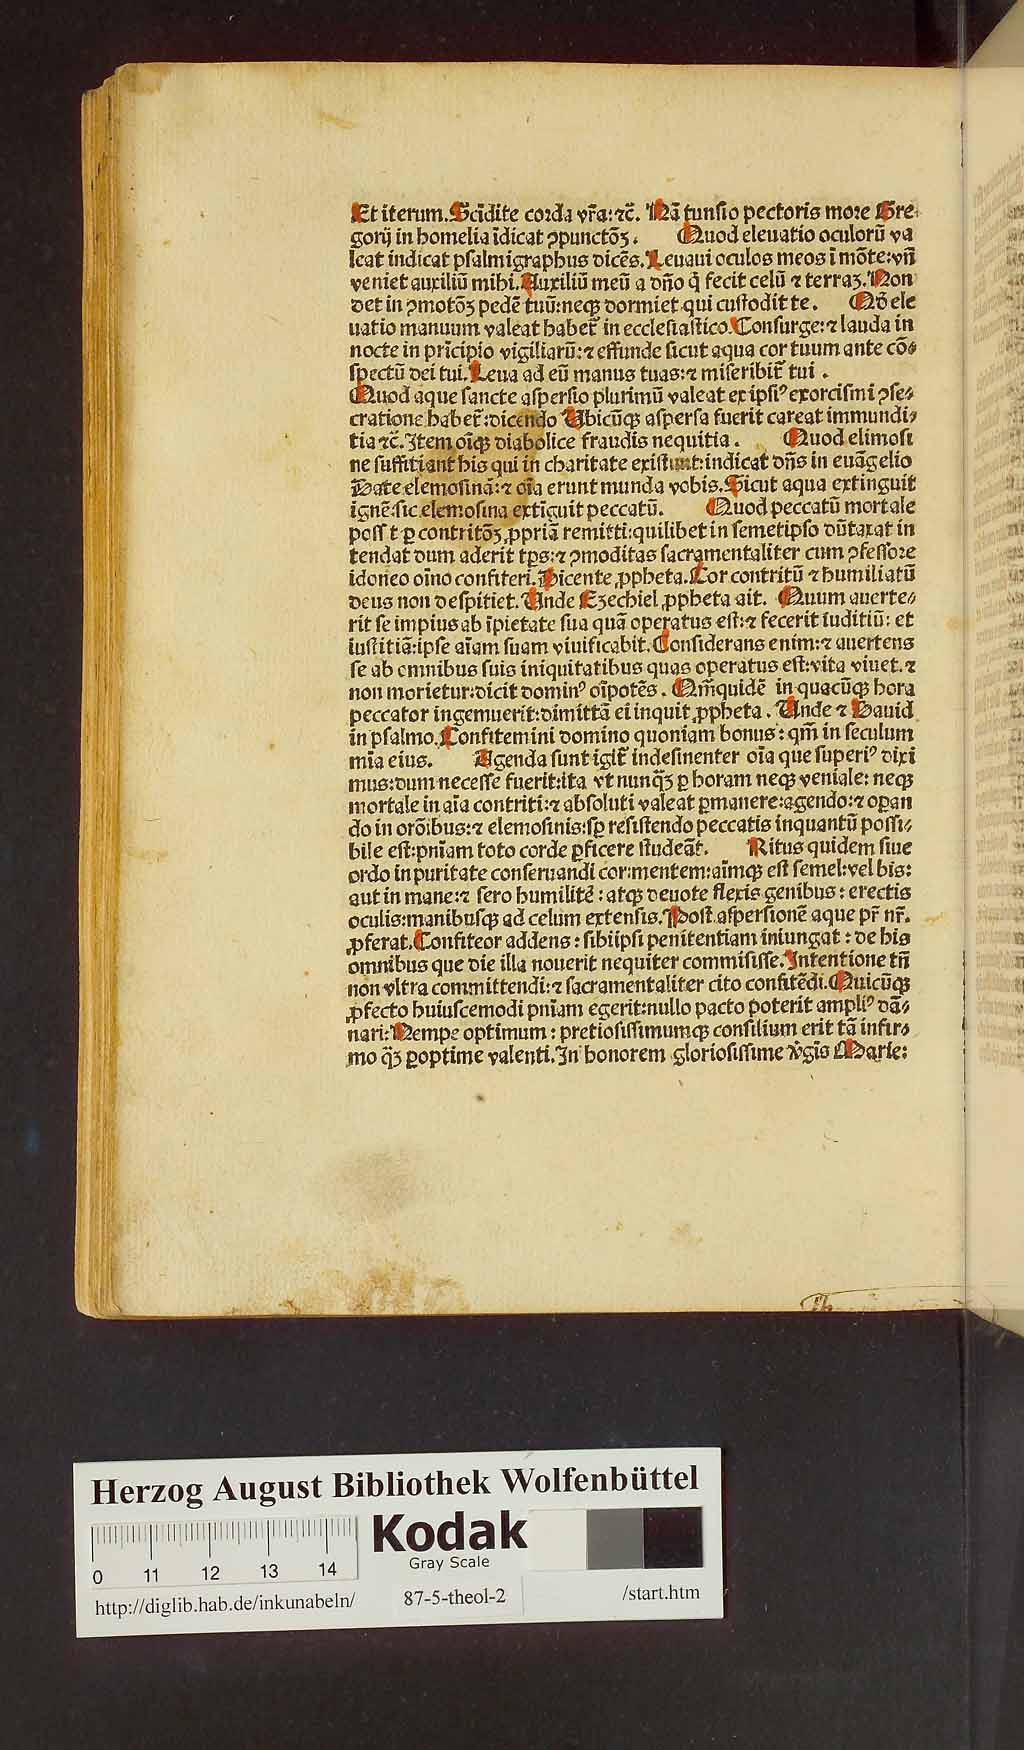 Et iterum. Scīdite corda vr̄a: ⁊c̄. Nā tunsio pectoris more Gre-
gorij in homelia īdicat ꝯpunctōꝫ. Quod eleuatio oculorū va
leat indicat psalmigraphus dicēs. Leuaui oculos meos ī mōte: vn̄
veniet auxiliū mihi. Auxiliū meū a dn̄o q̄ fecit celū ⁊ terraꝫ. Non
det in ꝯmotōꝫ pedē tuū: neqꝫ dormiet qui custodit te. Qd̄ ele
uatio manuum valeat habet᷑ in ecclesiastico. Consurge: ⁊ lauda in
nocte in prīcipio vigiliarū: ⁊ effunde sicut aqua cor tuum ante cō-
spectū dei tui. Leua ad eū manus tuas: ⁊ miseribit᷑ tui.
Quod aque sancte aspersio plurimū valeat ex ipsiꝰ exorcismi ꝯse-
cratione habet᷑: dicendo Ubicūqꝫ aspersa fuerit careat immundi-
tia ⁊c̄. Item oīqꝫ diabolice fraudis nequitia. Quod elimosi
ne suffitiant his qui in charitate existunt: indicat dn̄s in euāgelio
Date elemosinā: ⁊ oīa erunt munda vobis. Sicut aqua extinguit
ignē: sic elemosina extīguit peccatū. Quod peccatū mortale
poss t ꝑ contritōꝫ ꝓpriā remitti: quilibet in semetipso dūtaxat in
tendat dum aderit tp̄s: ⁊ ꝯmoditas sacramentaliter cum ꝯfessore
idoneo oīno confiteri. Dicente ꝓpheta. Cor contritū ⁊ humiliatū
deus non despitiet. Unde Ezechiel ꝓpheta ait. Quum auerte-
rit se impius ab īpietate sua quā operatus est: ⁊ fecerit iuditiū: et
iustitiā: ipse aīam suam viuificabit. Considerans enim: ⁊ auertens
se ab omnibus suis iniquitatibus quas operatus est: vita viuet. ⁊
non morietur: dicit dominꝰ oīpotēs. Qm̄quidē in quacūqꝫ hora
peccator ingemuerit: dimittā ei inquit ꝓpheta. Unde ⁊ Dauid
in psalmo. Confitemini domino quoniam bonus: qm̄ in seculum
mīa eius. Agenda sunt igit᷑ indesinenter oīa que superiꝰ dixi
mus: dum necesse fuerit: ita vt nunqꝫ ꝑ horam neqꝫ veniale: neqꝫ
mortale in aīa contriti: ⁊ absoluti valeat ꝑmanere: agendo: ⁊ oꝑan
do in orōibus: ⁊ elemosinis: sꝑ resistendo peccatis inquantū possi-
bile est: pn̄iam toto corde ꝑficere studeāt. Ritus quidem siue
ordo in puritate conseruandi cor: mentem: aīmqꝫ est semel: vel bis:
aut in mane: ⁊ sero humilitē: atqꝫ deuote flexis genibus: erectis
oculis: manibusqꝫ ad celum extensis. Post aspersionē aque pr̄ nr̄.
ꝓferat. Confiteor addens: sibiipsi penitentiam iniungat: de his
omnibus que die illa nouerit nequiter commisisse. Intentione tn̄
non vltra committendi: ⁊ sacramentaliter cito confitēdi. Quicūqꝫ
ꝓfecto huiuscemodi pn̄iam egerit: nullo pacto poterit ampliꝰ dā-
nari: Nempe optimum: pretiosissimumqꝫ consilium erit tā infir-
mo qꝫ̄ ꝑoptime valenti. In honorem gloriosissime v̄gīs Marie:
Herzog August Bibliothek Wolfenbüttel
Kodak
Gray Scale
0 11 12 13 14
http://diglib.hab.de/inkunabeln/ 87-5-theol-2 /start.htm